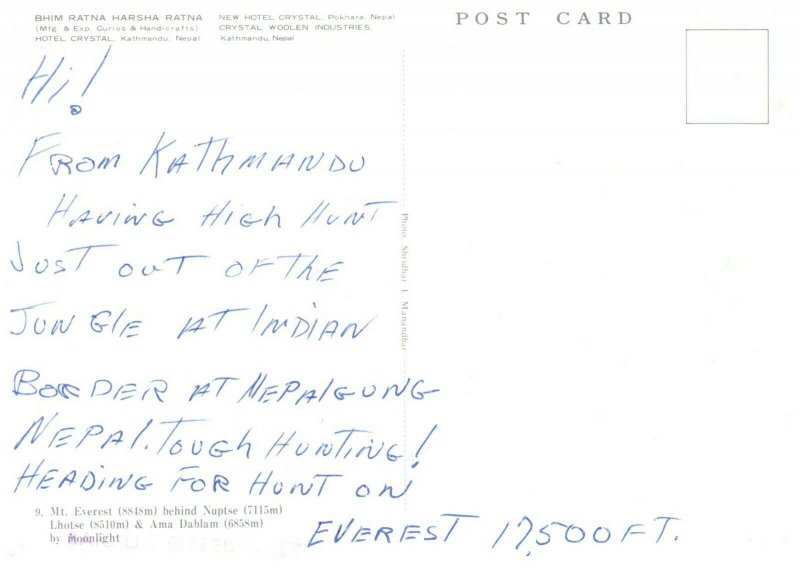 BHIM RATNA HARSHA RATNA
(Mfg. & Exp. Curios & Handicrafts)
HOTEL CRYSTAL, Kathmandu, Nepal
NEW HOTEL CRYSTAL, Pokhara, Nepal
CRYSTAL WOOLEN INDUSTRIES:
Kathmandu, Nepal
POST CARD
Hi!
FROM KATHMANDU
HAVING HIGH HUNT
JUST OUT OF THE
JUNGLE AT INDIAN
BORDER AT NEPALGUNG
NEPAL. TOUGH HUNTING!
HEADING FOR HUNT ON
EVEREST 17,500 FT.
Photo Shridhar L Manandhar
9. Mt. Everest (8848m) behind Nuptse (7115m)
Lhotse (8510m) & Ama Dablam (6858m)
by moonlight